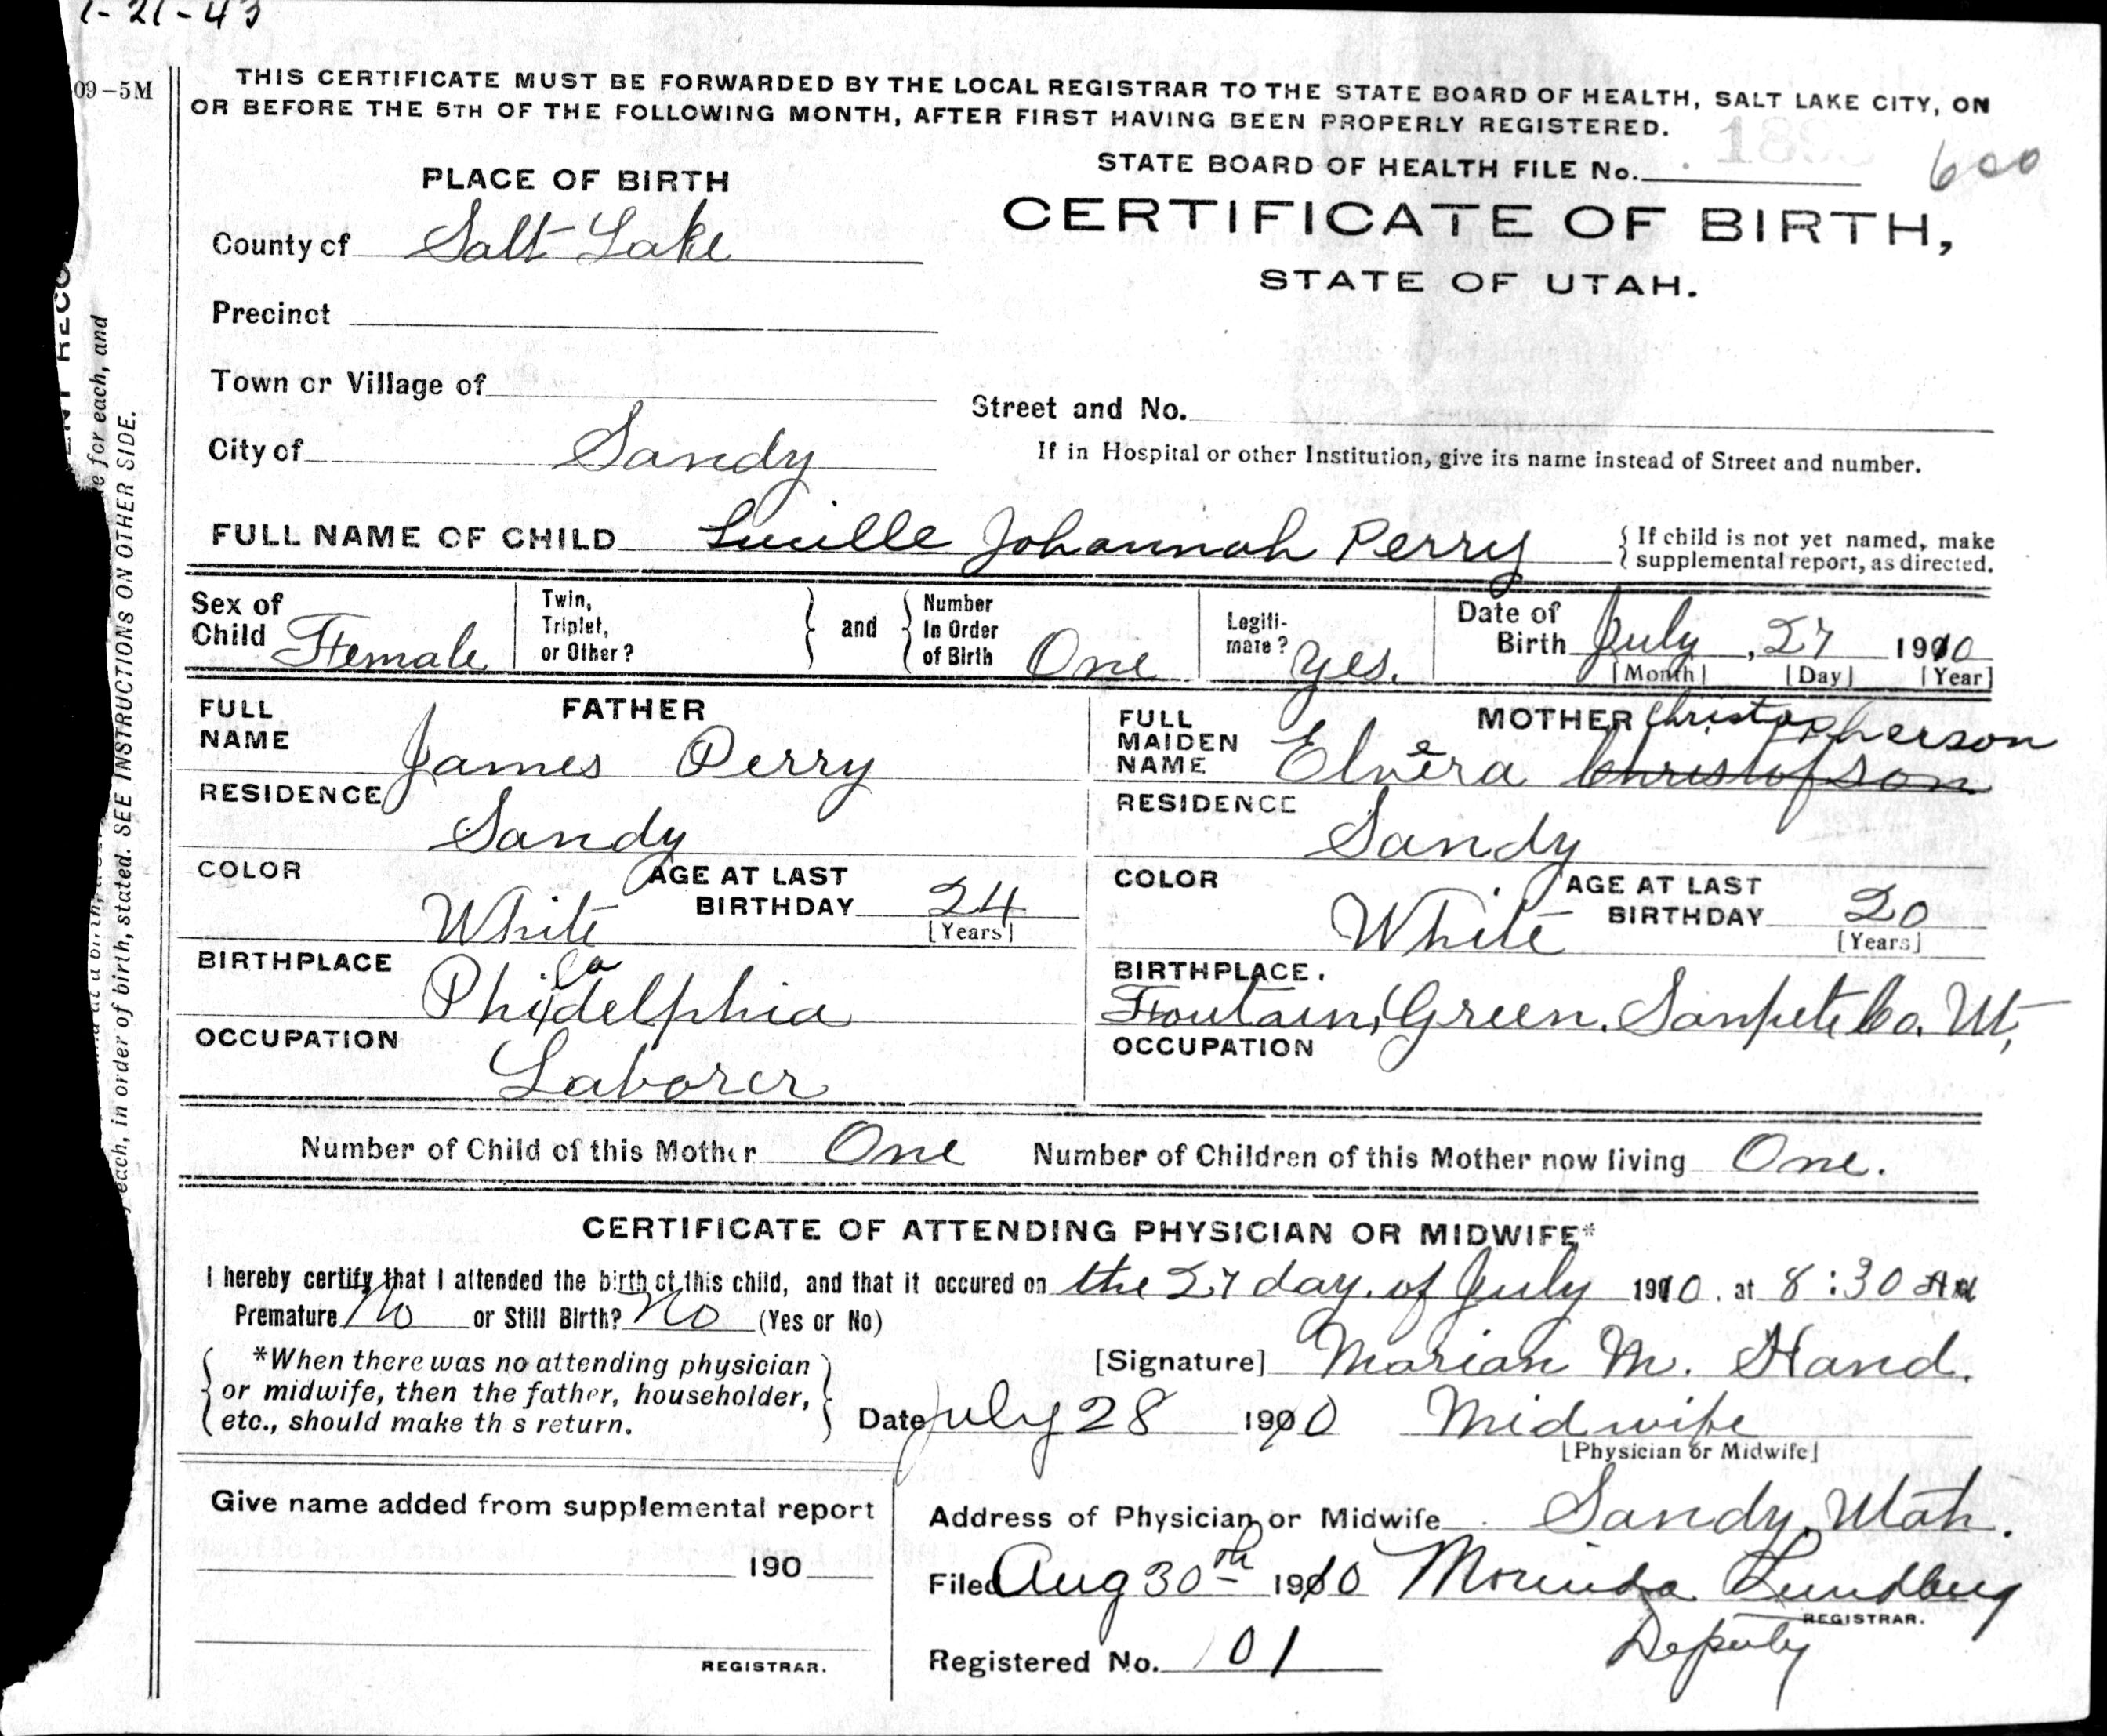 7-21-43
09-5M
THIS CERTIFICATE MUST BE FORWARDED BY THE LOCAL REGISTRAR TO THE STATE BOARD OF HEALTH, SALT LAKE CITY, ON
OR BEFORE THE 5TH OF THE FOLLOWING MONTH, AFTER FIRST HAVING BEEN PROPERLY REGISTERED.
STATE BOARD OF HEALTH FILE No. 600
PLACE OF BIRTH
CERTIFICATE OF BIRTH,
STATE OF UTAH.
County of Salt Lake
Precinct
Town or Village of
Street and No.
City of Sandy
If in Hospital or other Institution, give its name instead of Street and number.
FULL NAME OF CHILD Lucille Johannah Perry
If child is not yet named, make
supplemental report, as directed.
Sex of Child Female
Twin, Triplet, or Other?
and
Number In Order of Birth One
Legiti-mate? Yes.
Date of Birth July, 27 1910
[Month] [Day] [Year]
FATHER
FULL NAME James Perry
RESIDENCE
Sandy
COLOR White
AGE AT LAST BIRTHDAY 24
[Years]
BIRTHPLACE
Philadelphia
OCCUPATION
Laborer
MOTHER
FULL MAIDEN NAME Elvera Christofson Christopherson
RESIDENCE
Sandy
COLOR White
AGE AT LAST BIRTHDAY 20
[Years]
BIRTHPLACE.
Fountain, Green. Sanpete Co. Ut,
OCCUPATION
Number of Child of this Mother One Number of Children of this Mother now living One.
CERTIFICATE OF ATTENDING PHYSICIAN OR MIDWIFE*
I hereby certify that I attended the birth of this child, and that it occured on the 27 day. of July 1910. at 8:30 AM
Premature No or Still Birth? No (Yes or No)
*When there was no attending physician
or midwife, then the father, householder,
etc., should make th s return.
[Signature] Marian M. Hand.
Date July 28 1910 Midwife
[Physician or Midwife]
Give name added from supplemental report
190
REGISTRAR.
Address of Physician or Midwife Sandy, Utah.
Filed Aug 30th 1910 Lundberg
REGISTRAR.
Deputy
Registered No. 101
ENT RECO
e for each, and
each, in order of birth, stated. SEE INSTRUCTIONS ON OTHER SIDE.